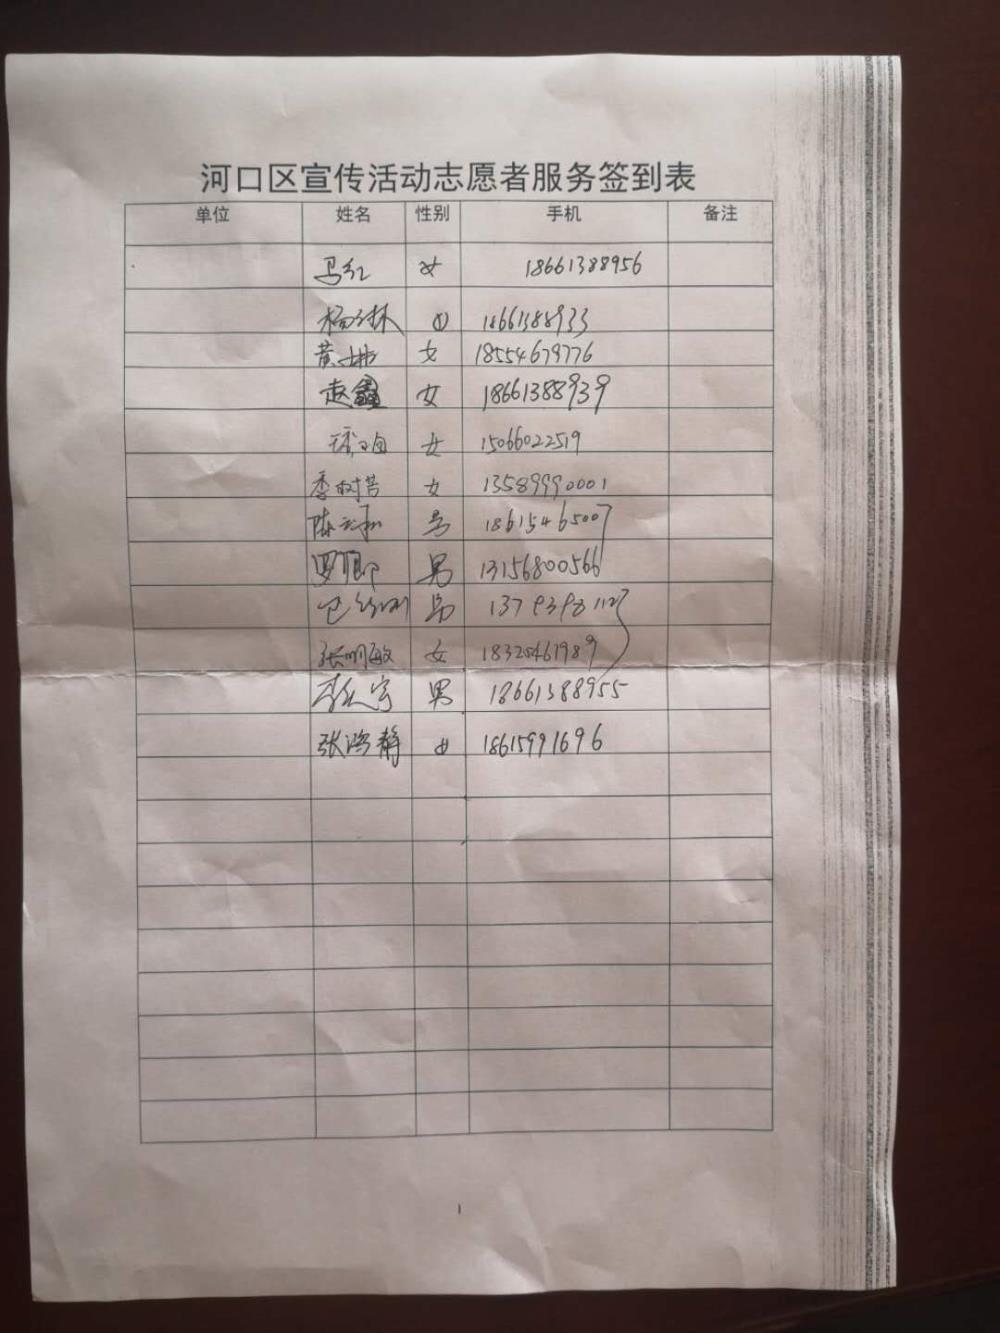 河口区宣传活动志愿者服务签到表
单位 姓名 性别 手机 备注
马红 女 18661388956
杨 林 女 18661388933
黄 女 18554679776
赵鑫 女 18661388939
女 15066022519
李树苦 女 13589990001
陈 男 18615465007
罗 男 13156800566
男
张明敏 女 18325461989
李 宇 男 18661388955
张鸿静 女 18615991696
1